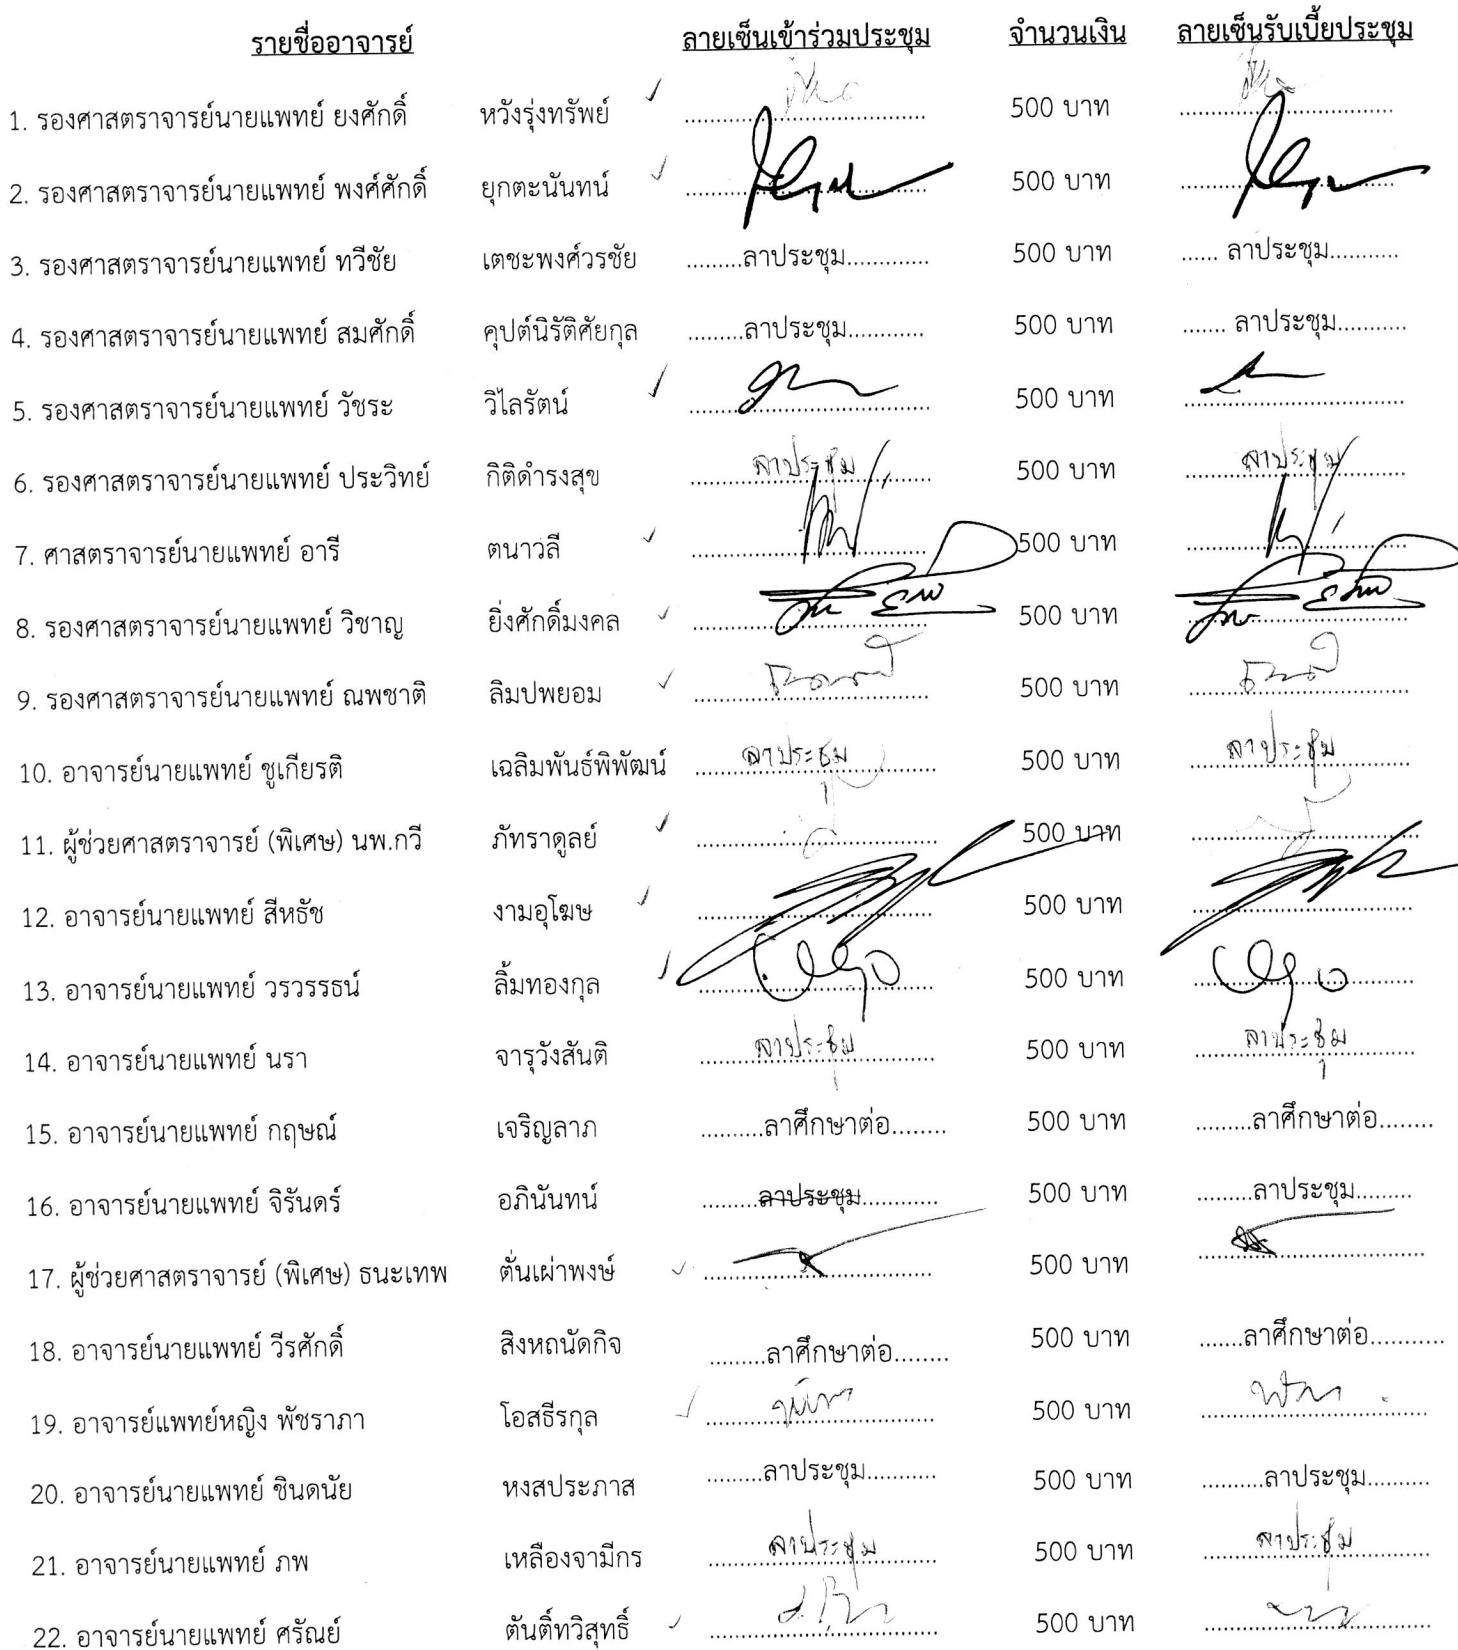 รายชื่ออาจารย์ ลายเซ็นเข้าร่วมประชุม จำนวนเงิน ลายเซ็นรับเบี้ยประชุม
1. รองศาสตราจารย์นายแพทย์ ยงศักดิ์ หวังรุ่งทรัพย์ ✓ ........................ 500 บาท ........................
2. รองศาสตราจารย์นายแพทย์ พงศ์ศักดิ์ ยุกตะนันทน์ ✓ ........................ 500 บาท ........................
3. รองศาสตราจารย์นายแพทย์ ทวีชัย เตชะพงศ์วรชัย .........ลาประชุม............. 500 บาท ...... ลาประชุม...........
4. รองศาสตราจารย์นายแพทย์ สมศักดิ์ คุปต์นิรัติศัยกุล .........ลาประชุม............ 500 บาท ....... ลาประชุม...........
5. รองศาสตราจารย์นายแพทย์ วัชระ วิไลรัตน์ ✓ ........................ 500 บาท ........................
6. รองศาสตราจารย์นายแพทย์ ประวิทย์ กิติดำรงสุข ลาประชุม 500 บาท ลาประชุม
7. ศาสตราจารย์นายแพทย์ อารี ตนาวลี ✓ ........................ 500 บาท ........................
8. รองศาสตราจารย์นายแพทย์ วิชาญ ยิ่งศักดิ์มงคล ✓ ........................ 500 บาท ........................
9. รองศาสตราจารย์นายแพทย์ ณพชาติ ลิมปพยอม ✓ ........................ 500 บาท ........................
10. อาจารย์นายแพทย์ ชูเกียรติ เฉลิมพันธ์พิพัฒน์ ลาประชุม 500 บาท ลาประชุม
11. ผู้ช่วยศาสตราจารย์ (พิเศษ) นพ.กวี ภัทราดูลย์ ✓ ........................ 500 บาท ........................
12. อาจารย์นายแพทย์ สีหธัช งามอุโฆษ ✓ ........................ 500 บาท ........................
13. อาจารย์นายแพทย์ วรวรรธน์ ลิ้มทองกุล ✓ ........................ 500 บาท ........................
14. อาจารย์นายแพทย์ นรา จารุวังสันติ ลาประชุม 500 บาท ลาประชุม
15. อาจารย์นายแพทย์ กฤษณ์ เจริญลาภ .........ลาศึกษาต่อ........ 500 บาท .........ลาศึกษาต่อ........
16. อาจารย์นายแพทย์ จิรันดร์ อภินันทน์ .........ลาประชุม............ 500 บาท .........ลาประชุม.........
17. ผู้ช่วยศาสตราจารย์ (พิเศษ) ธนะเทพ ตั่นเผ่าพงษ์ ✓ ........................ 500 บาท ........................
18. อาจารย์นายแพทย์ วีรศักดิ์ สิงหถนัดกิจ .........ลาศึกษาต่อ........ 500 บาท .......ลาศึกษาต่อ...........
19. อาจารย์แพทย์หญิง พัชราภา โอสธีรกุล ✓ ........................ 500 บาท ........................
20. อาจารย์นายแพทย์ ชินดนัย หงสประภาส .........ลาประชุม........... 500 บาท ..........ลาประชุม..........
21. อาจารย์นายแพทย์ ภพ เหลืองจามีกร ลาประชุม 500 บาท ลาประชุม
22. อาจารย์นายแพทย์ ศรัณย์ ตันติ์ทวิสุทธิ์ ✓ ........................ 500 บาท ........................